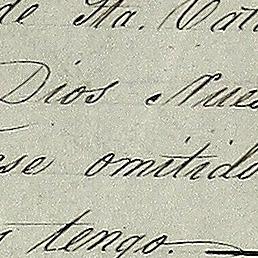 de Sta. Cata
Dios Nues
se omitido
tengo.